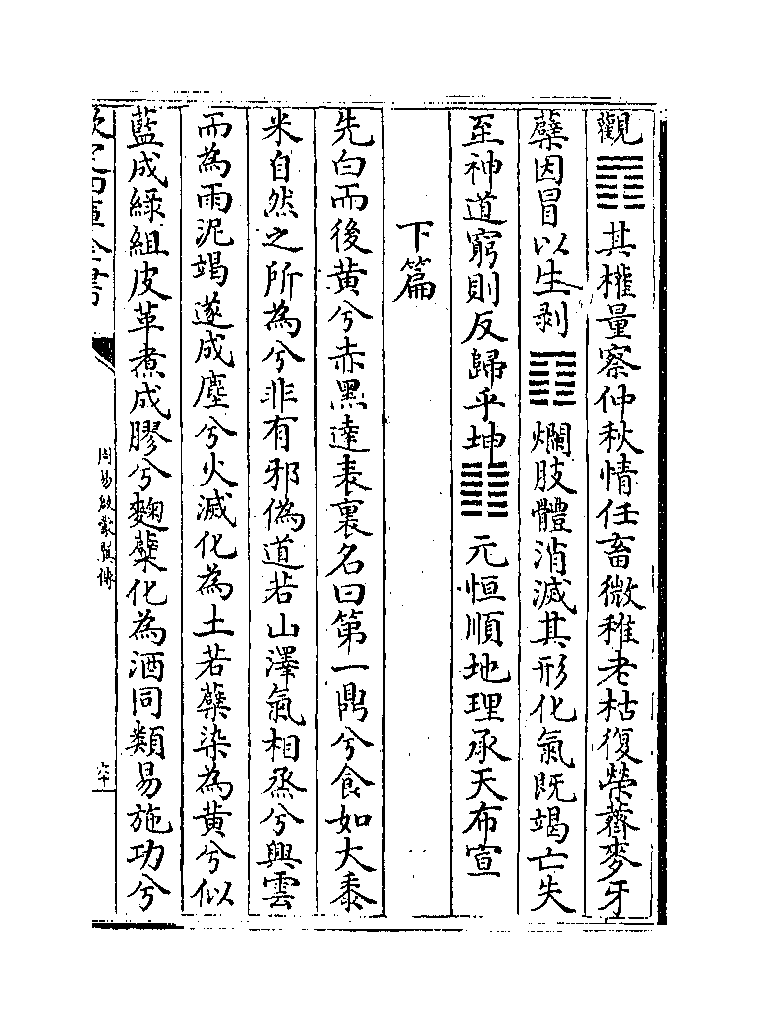 觀䷓其權量察仲秋情任畜微稚老枯復榮薺麥牙
蘖因冒以生剥䷖爛肢體消滅其形化氣既竭亡失
至神道窮則反歸乎坤䷁元恒順地理承天布宣
下篇
先白而後黄兮赤黑達表裏名曰第一鼎兮食如大黍
米自然之所為兮非有邪偽道若山澤氣相烝兮興雲
而為雨泥竭遂成塵兮火滅化為土若蘖染為黄兮似
藍成綠組皮革煮成膠兮麴蘖化為酒同類易施功兮
欽定四庫全書
周易啟蒙翼傳
六十